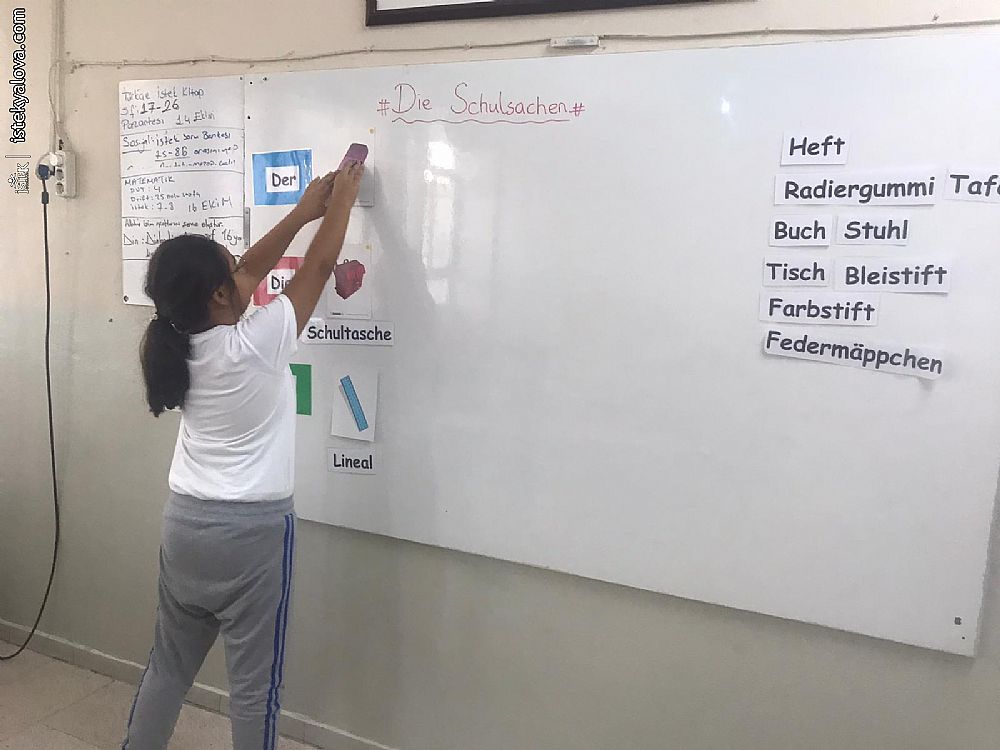 ışık | istekyalova.com
Türkçe İstek Kitap
Sf: 17-26
Pazartesi 14 Ekim
Sosyal: istek soru Bankası
25-86
MATEMATİK
16 EKİM
#Die Schulsachen#
Der
Die
Schultasche
Lineal
Heft
Radiergummi Tafe
Buch Stuhl
Tisch Bleistift
Farbstift
Federmäppchen